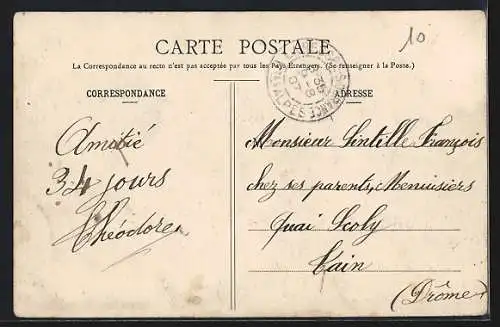 10
CARTE POSTALE
La Correspondance au recto n'est pas acceptée par tous les Pays Étrangers. (Se renseigner à la Poste.)
CORRESPONDANCE
ADRESSE
ALPES
Amitié
34 jours
Théodore
Monsieur Lintille François
chez ses parents, Menuisiers
Quai Scoly
Tain
(Drôme)